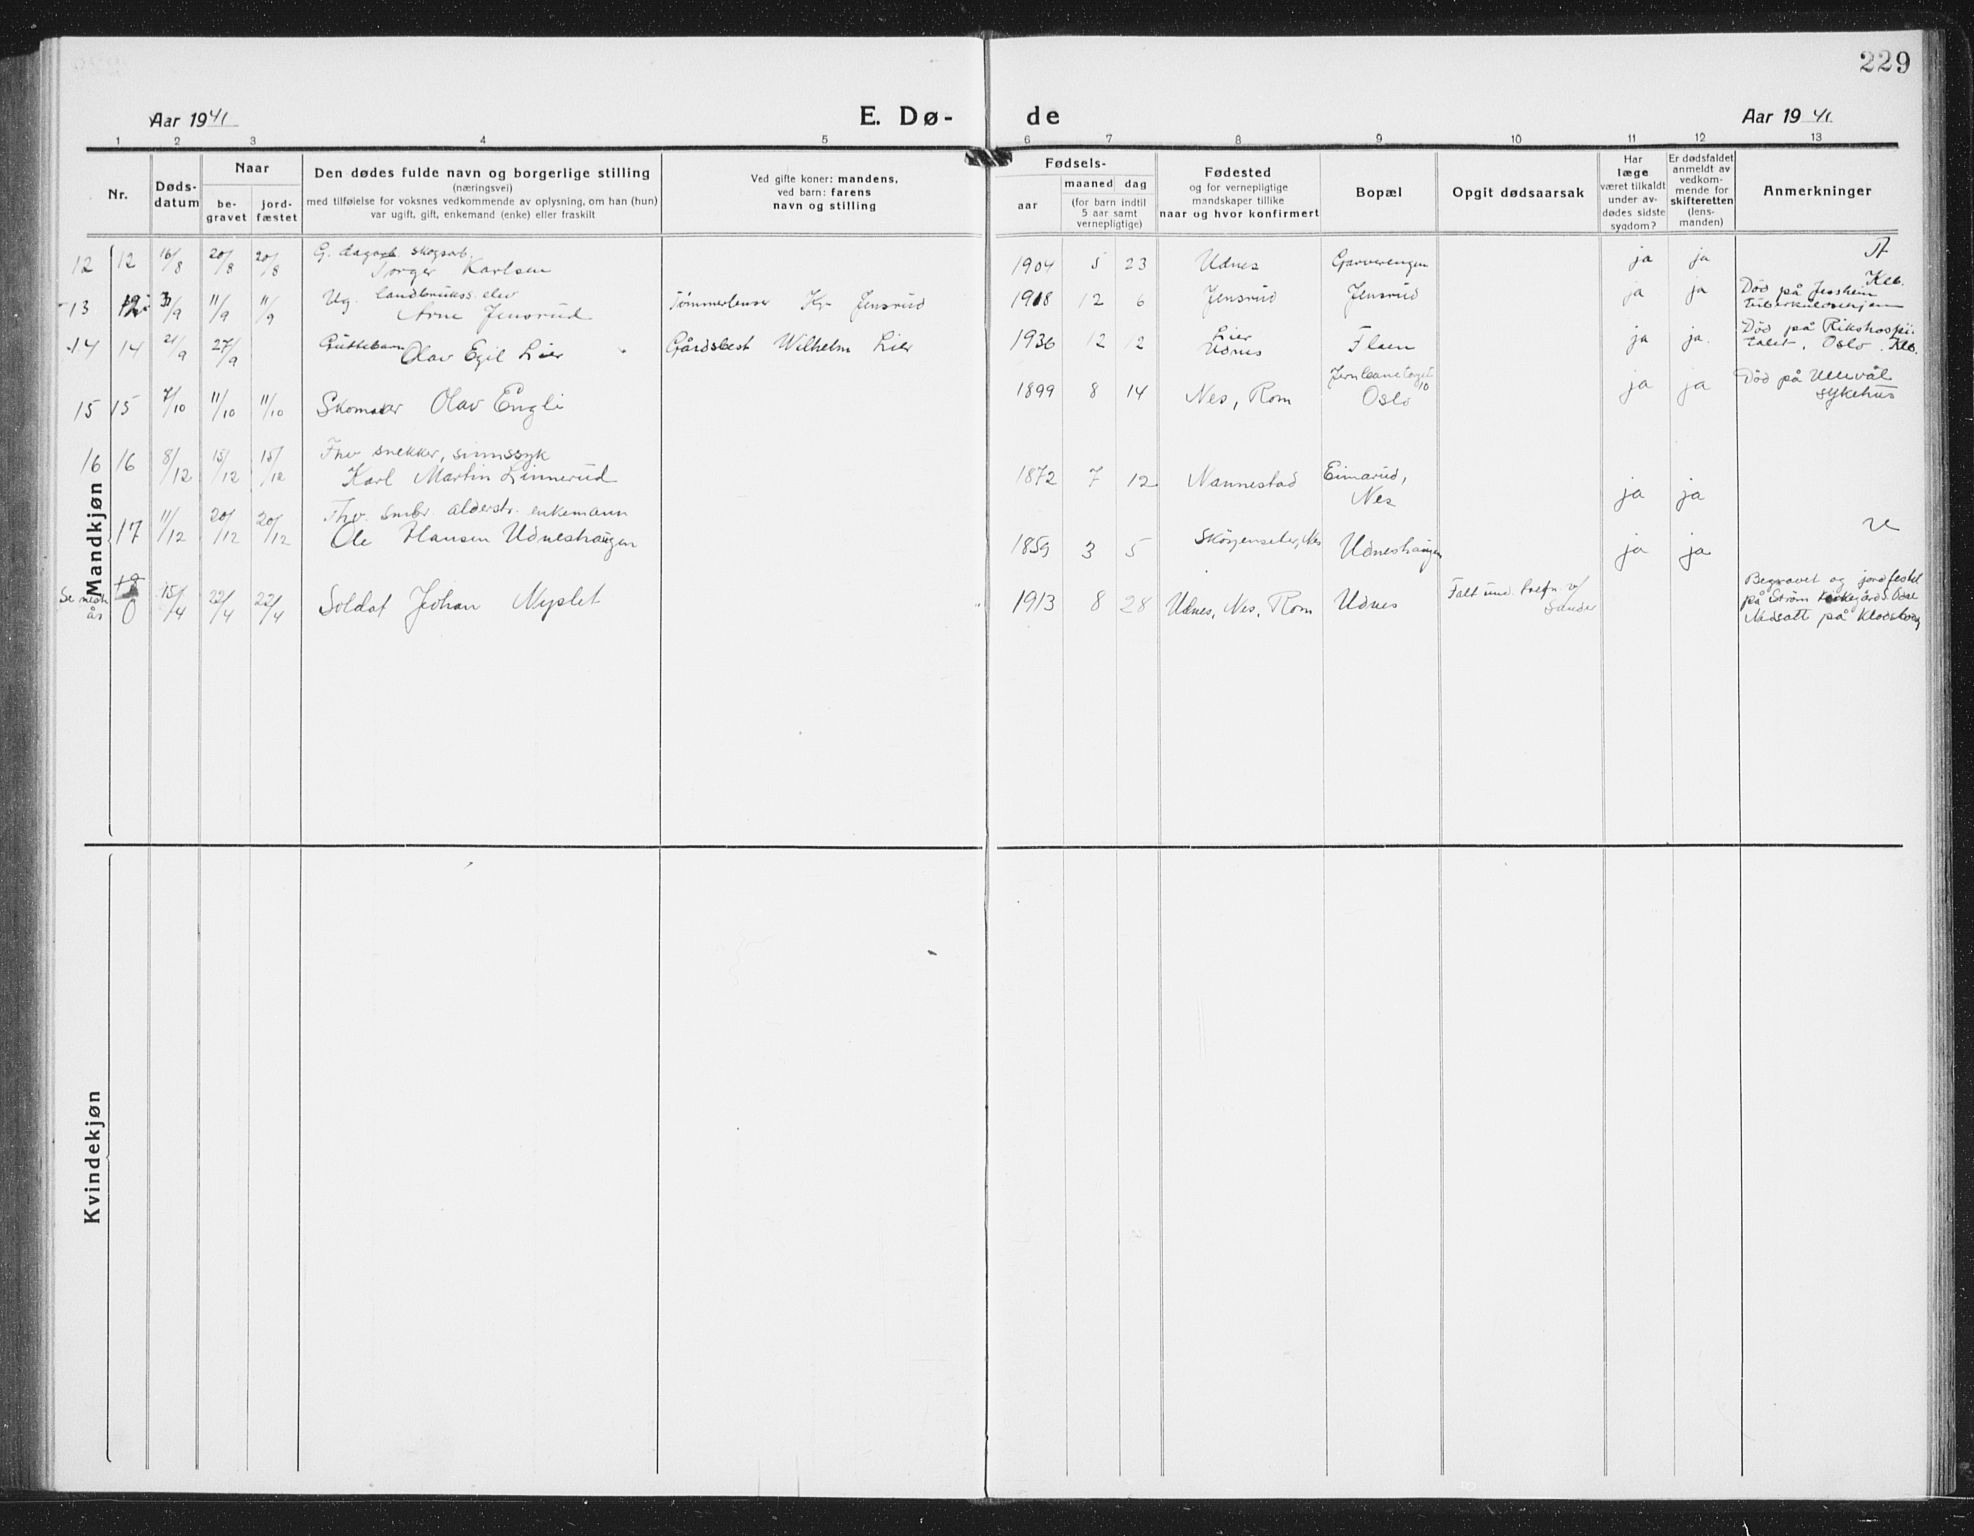 229
Aar 1941 E. Dø- de Aar 1941
1 2 3 4 5 6 7 8 9 10 11 12 13
Nr.
Døds-
datum
Naar
be-
gravet
jord-
fæstet
Den dødes fulde navn og borgerlige stilling
(næringsvei)
med tilføielse for voksnes vedkommende av oplysning, om han (hun)
var ugift, gift, enkemand (enke) eller fraskilt
Ved gifte koner: mandens,
ved barn: farens
navn og stilling
Fødsels-
aar
maaned dag
(for barn indtil
5 aar samt
vernepligtige)
Fødested
og for vernepligtige
mandskaper tillike
naar og hvor konfirmert
Bopæl
Opgit dødsaarsak
Har
læge
været tilkaldt
under av-
dødes sidste
sygdom?
Er dødsfaldet
anmeldt av
vedkom-
mende for
skifteretten
(lens-
manden)
Anmerkninger
Mandkjøn
12 12 16/8 20/8 20/8 G. skogsarb.
Torger Karlsen 1904 5 23 Udnes Garverengen ja ja
13 3/9 11/9 11/9 Ug. landbrukss. elev
Arne Jensrud Tømmerlenser Kr. Jensrud 1918 12 6 Jensrud Jensrud ja ja Død på Jessheim
tuberkulosehjem
14 14 21/9 27/9 Guttebarn Olav Egil Lier Gårdsbest Wilhelm Lier 1936 12 12 Lier
Udnes Flaen ja ja. Død på Rikshospi-
talet, Oslo. Klb.
15 15 7/10 11/10 11/10 Skomaker Olav Engli 1899 8 14 Nes, Rom Jernbanetorget
10
Oslo ja ja Død på Ullevål
sykehus
16 16 8/12 15/12 15/12 Fhv snekker, sinnssyk
Karl Martin Linnerud 1872 7 12 Nannestad Eimarud,
Nes ja ja
17 11/12 20/12 20/12 Fhv. smbr. alderstr. enkemann
Ole Hansen Udneshaugen 1859 3 5 Nes Udneshaugen ja ja
Se neste
år 18
0 15/4 22/4 22/4 Soldat Johan Nyslet 1913 8 28 Udnes, Nes, Rom Udnes Falt und. trefn v/
Sander Begravet og jordfestet
på Strøm kirkegård S. Odal
Nedsatt på
Kvindekjøn